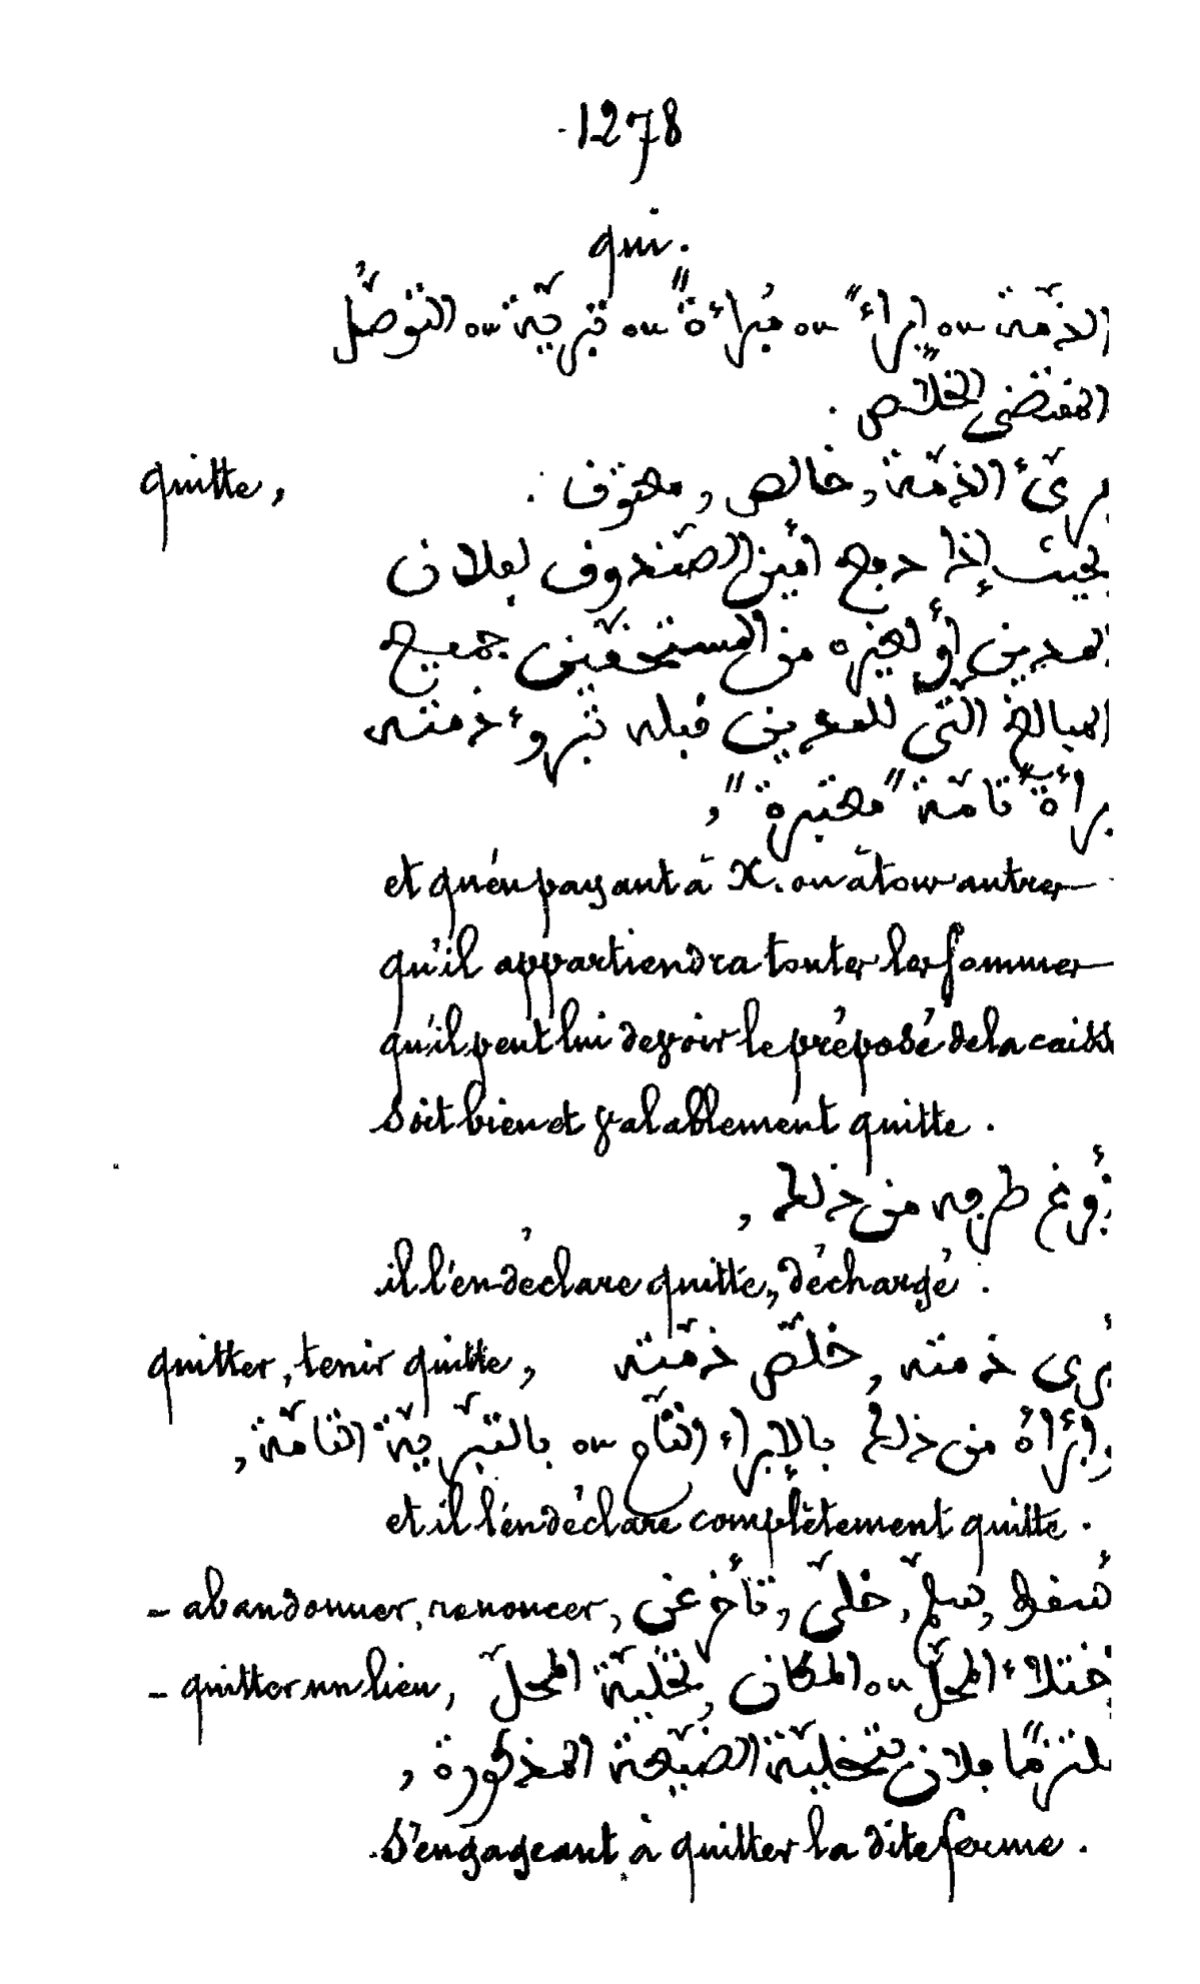 1278
qui.
الذمّة ou إبراءً ou مُبراءةً ou تبريّة ou التّوصّلُ
المقتضى الخلاص.
quitte, برىّء الذمّة, خالص, معتوق.
بحيث إذا دفع أمين الصّندوق لفلان
المدين أو لغيره من المستحقّين جميع
المبالغ الّتى للمدين قبله تبروء ذمته
براءةً تامّةً معتبرةً,
et qu'en payant à X. ou à tous autres
qu'il appartiendra toutes les sommes
qu'il peut lui devoir le préposé de la caiss
soit bien et valablement quitte.
طرفه من ذلك,
il l'en déclare quitte, déchargé.
quitter, tenir quitte, برى ذمته, خلّص ذمّته
وأبرأهُ من ذلك بالإبراء التّام ou بالتبريّة التامّة,
et il l'en déclare complètement quitte.
- abandonner, renoncer, سلّم, خلّى, تأخّر عن
- quitter un lieu, المحلّ ou المكان, تخلية المحلّ
ملتزمًا فلان بتخليّة الضيعة المذكورة,
s'engageant à quitter la dite ferme.